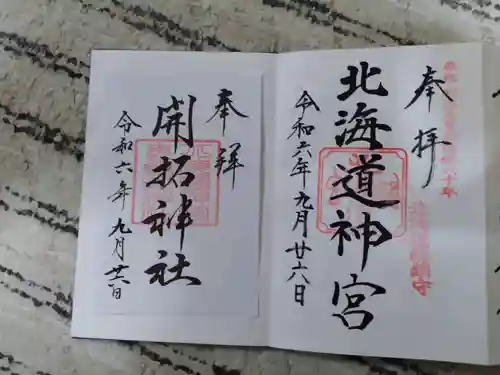 奉拝
北海道神宮
令和六年九月廿六日
奉拜
開拓神社
令和六年九月廿六日